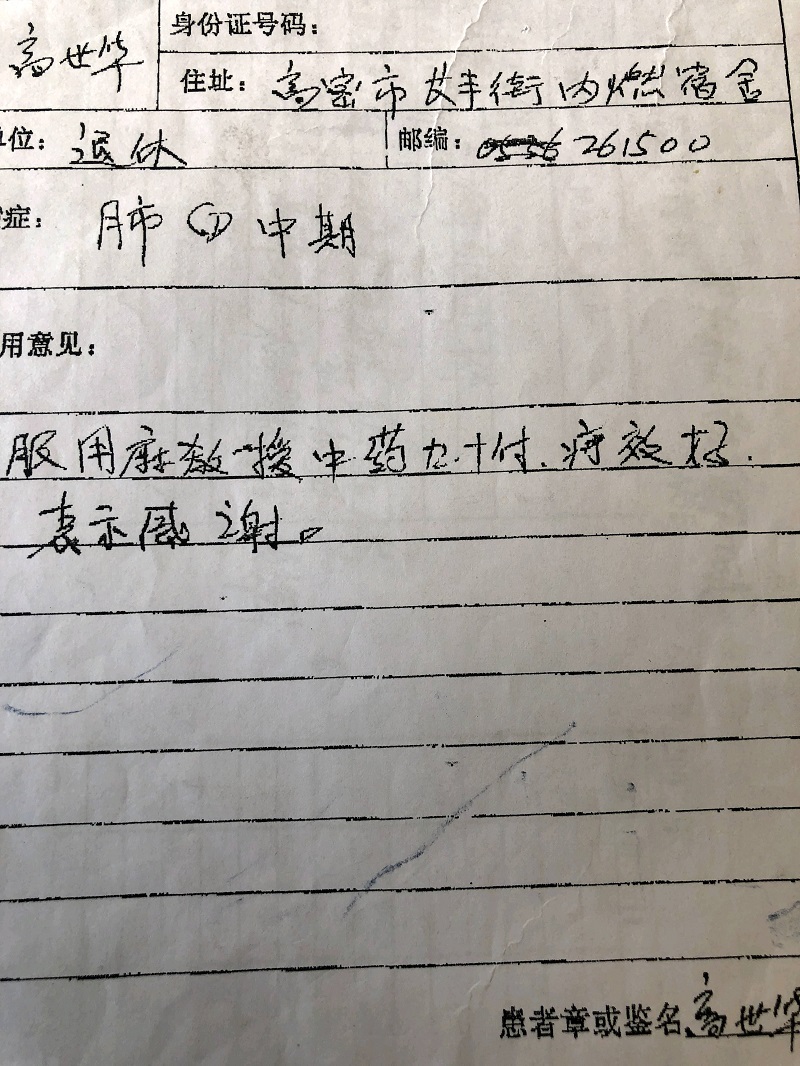 高世华
身份证号码：
住址：高密市 丰街内燃宿舍
位：退休
邮编：261500
症：肺 中期
用意见：
服用麻教授中药九十付、疗效好．
表示感谢。
患者章或鉴名 高世华